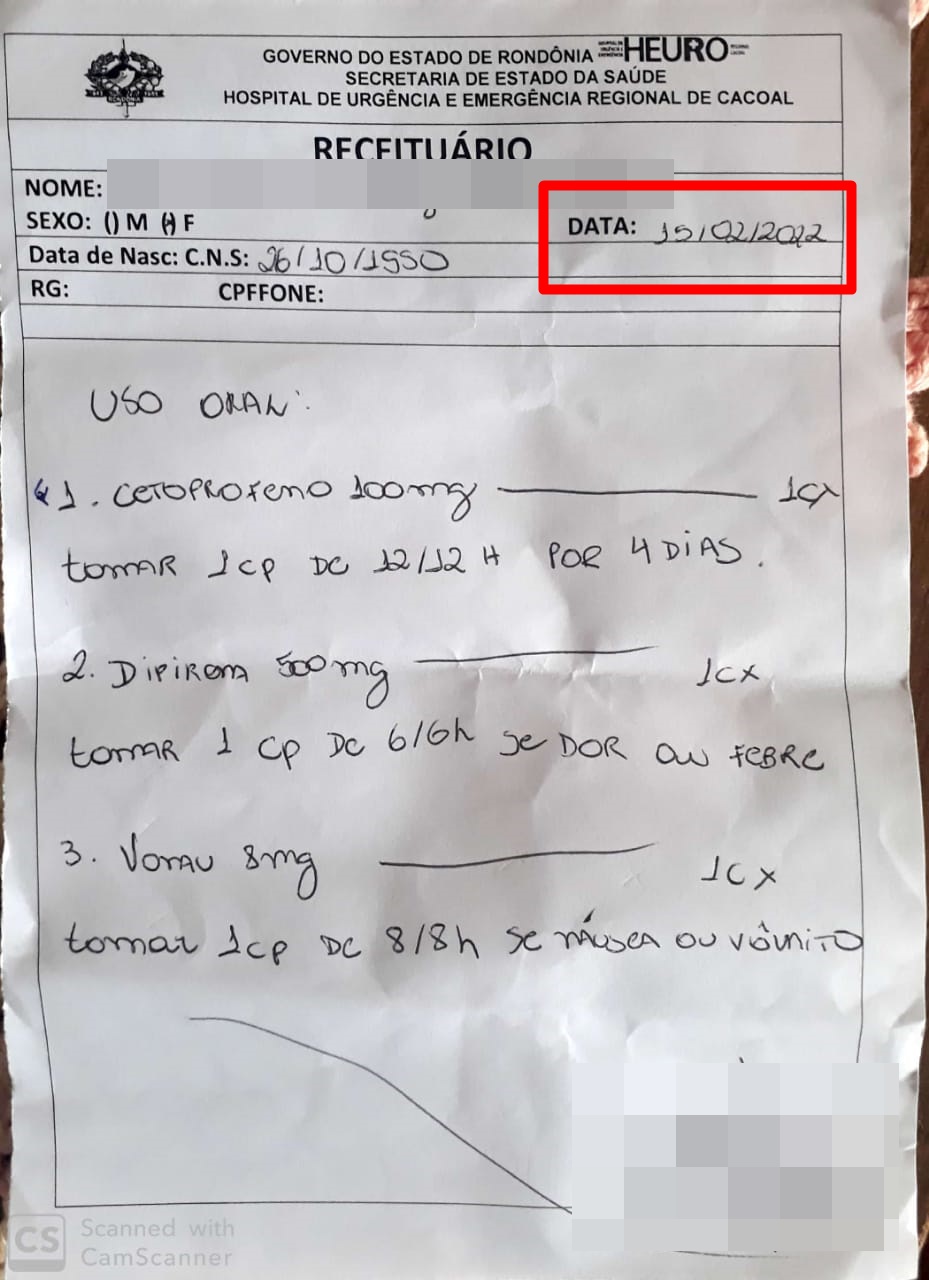 GOVERNO DO ESTADO DE RONDÔNIA HEURO
SECRETARIA DE ESTADO DA SAÚDE
HOSPITAL DE URGÊNCIA E EMERGÊNCIA REGIONAL DE CACOAL
RECEITUÁRIO
NOME:
SEXO: () M (-) F
DATA: 15/02/2022
Data de Nasc: C.N.S: 26/10/1990
RG: CPFFONE:
USO ORAL:
1. CETOPROFENO 100mg 1cx
tomAR 1cp DE 12/12 H POR 4 DIAS.
2. DIPIRONA 500mg 1cx
tomAR 1 cp DE 6/6h se DOR ou FEBRE
3. VONAU 8mg 1cx
tomar 1cp DE 8/8h se NÁUSEA OU VÔMITO
CS Scanned with
CamScanner